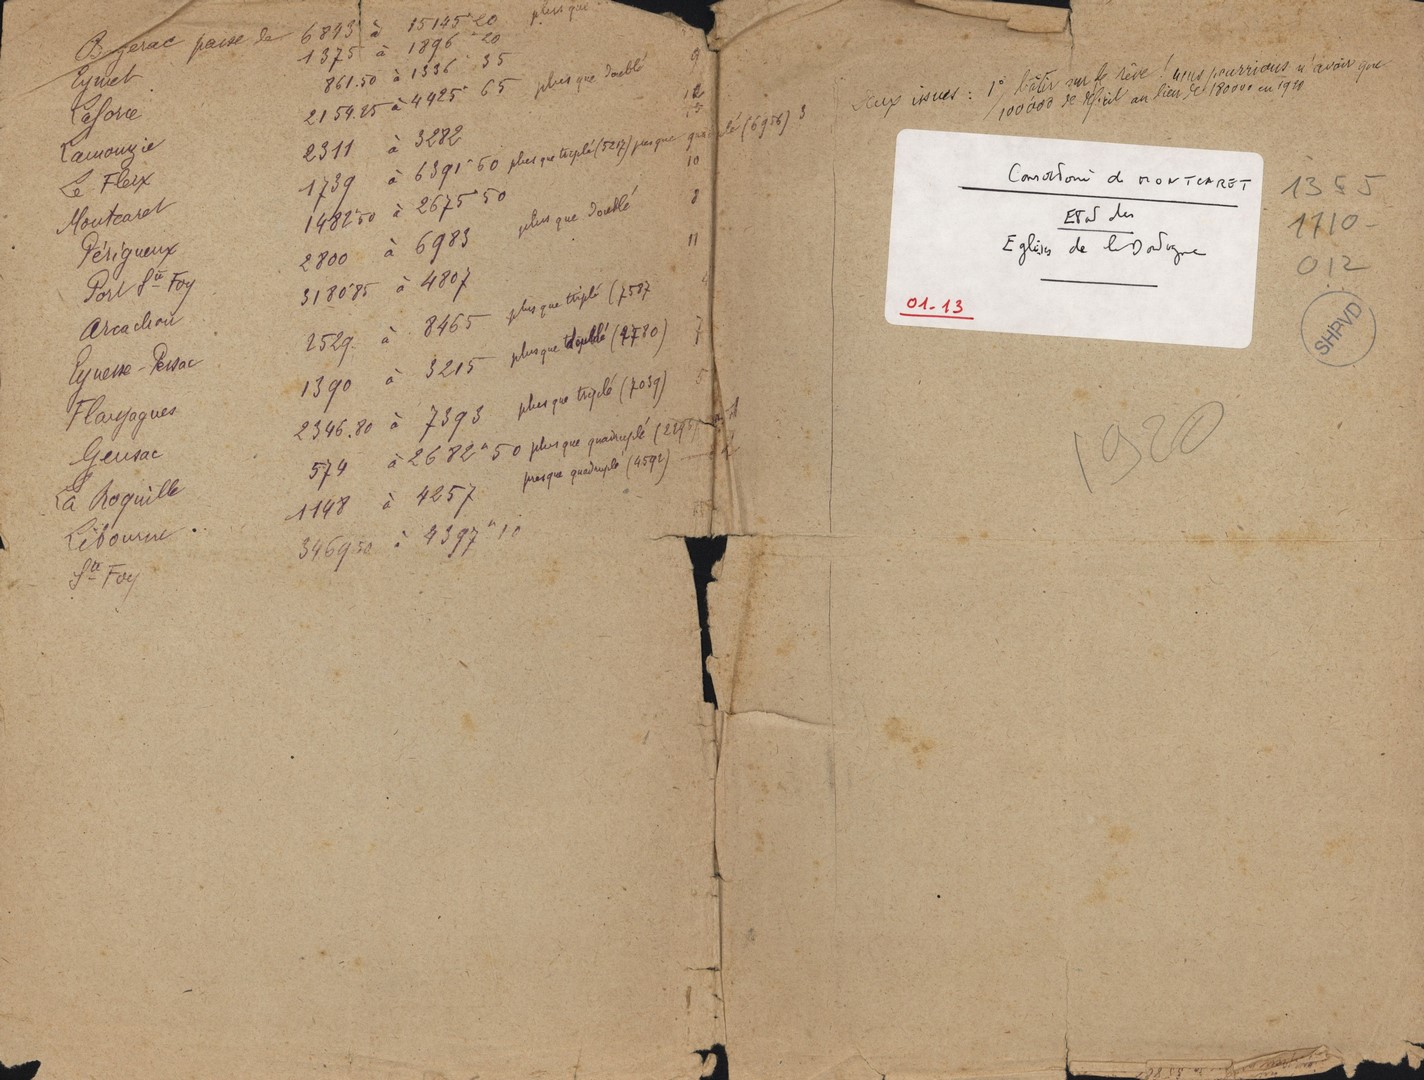 Bergerac passe de 6893 à 15145"20 plus que
Eymet 1375 à 1896"20
Laforce 861.50 à 1336"35 9
Lamonzie 2159.25 à 4425"65 plus que doublé 12
Le Fleix 2311 à 3282 5
Montcaret 1739 à 6391"50 plus que triplé (5217) presque quadruplé (6956) 3
Périgueux 1482"50 à 2675"50 10
Port Ste Foy 2800 à 6983 plus que doublé 8
Arcachon 3180"85 à 4807 11
Eynesse-Pessac 2529. à 8465 plus que triplé (7587
Flaujagues 1390 à 3215 plus que doublé (2780) 7
Gensac 2346.80 à 7393 plus que triplé (7039) 5
La Roquille 574 à 2682"50 plus que quadruplé
Libourne 1148 à 4257 presque quadruplé (4592)
Ste Foy 3469.50 à 4397"10
Deux issues : 1° bâter sur le rêve ! nous pourrions n'avoir que
100000 de déficit au lieu de 180000 en 1920
Consistoire de MONTCARET
Etat des
Eglises de la Dordogne
01-13
1355
1710-
012
SHPVD
1920